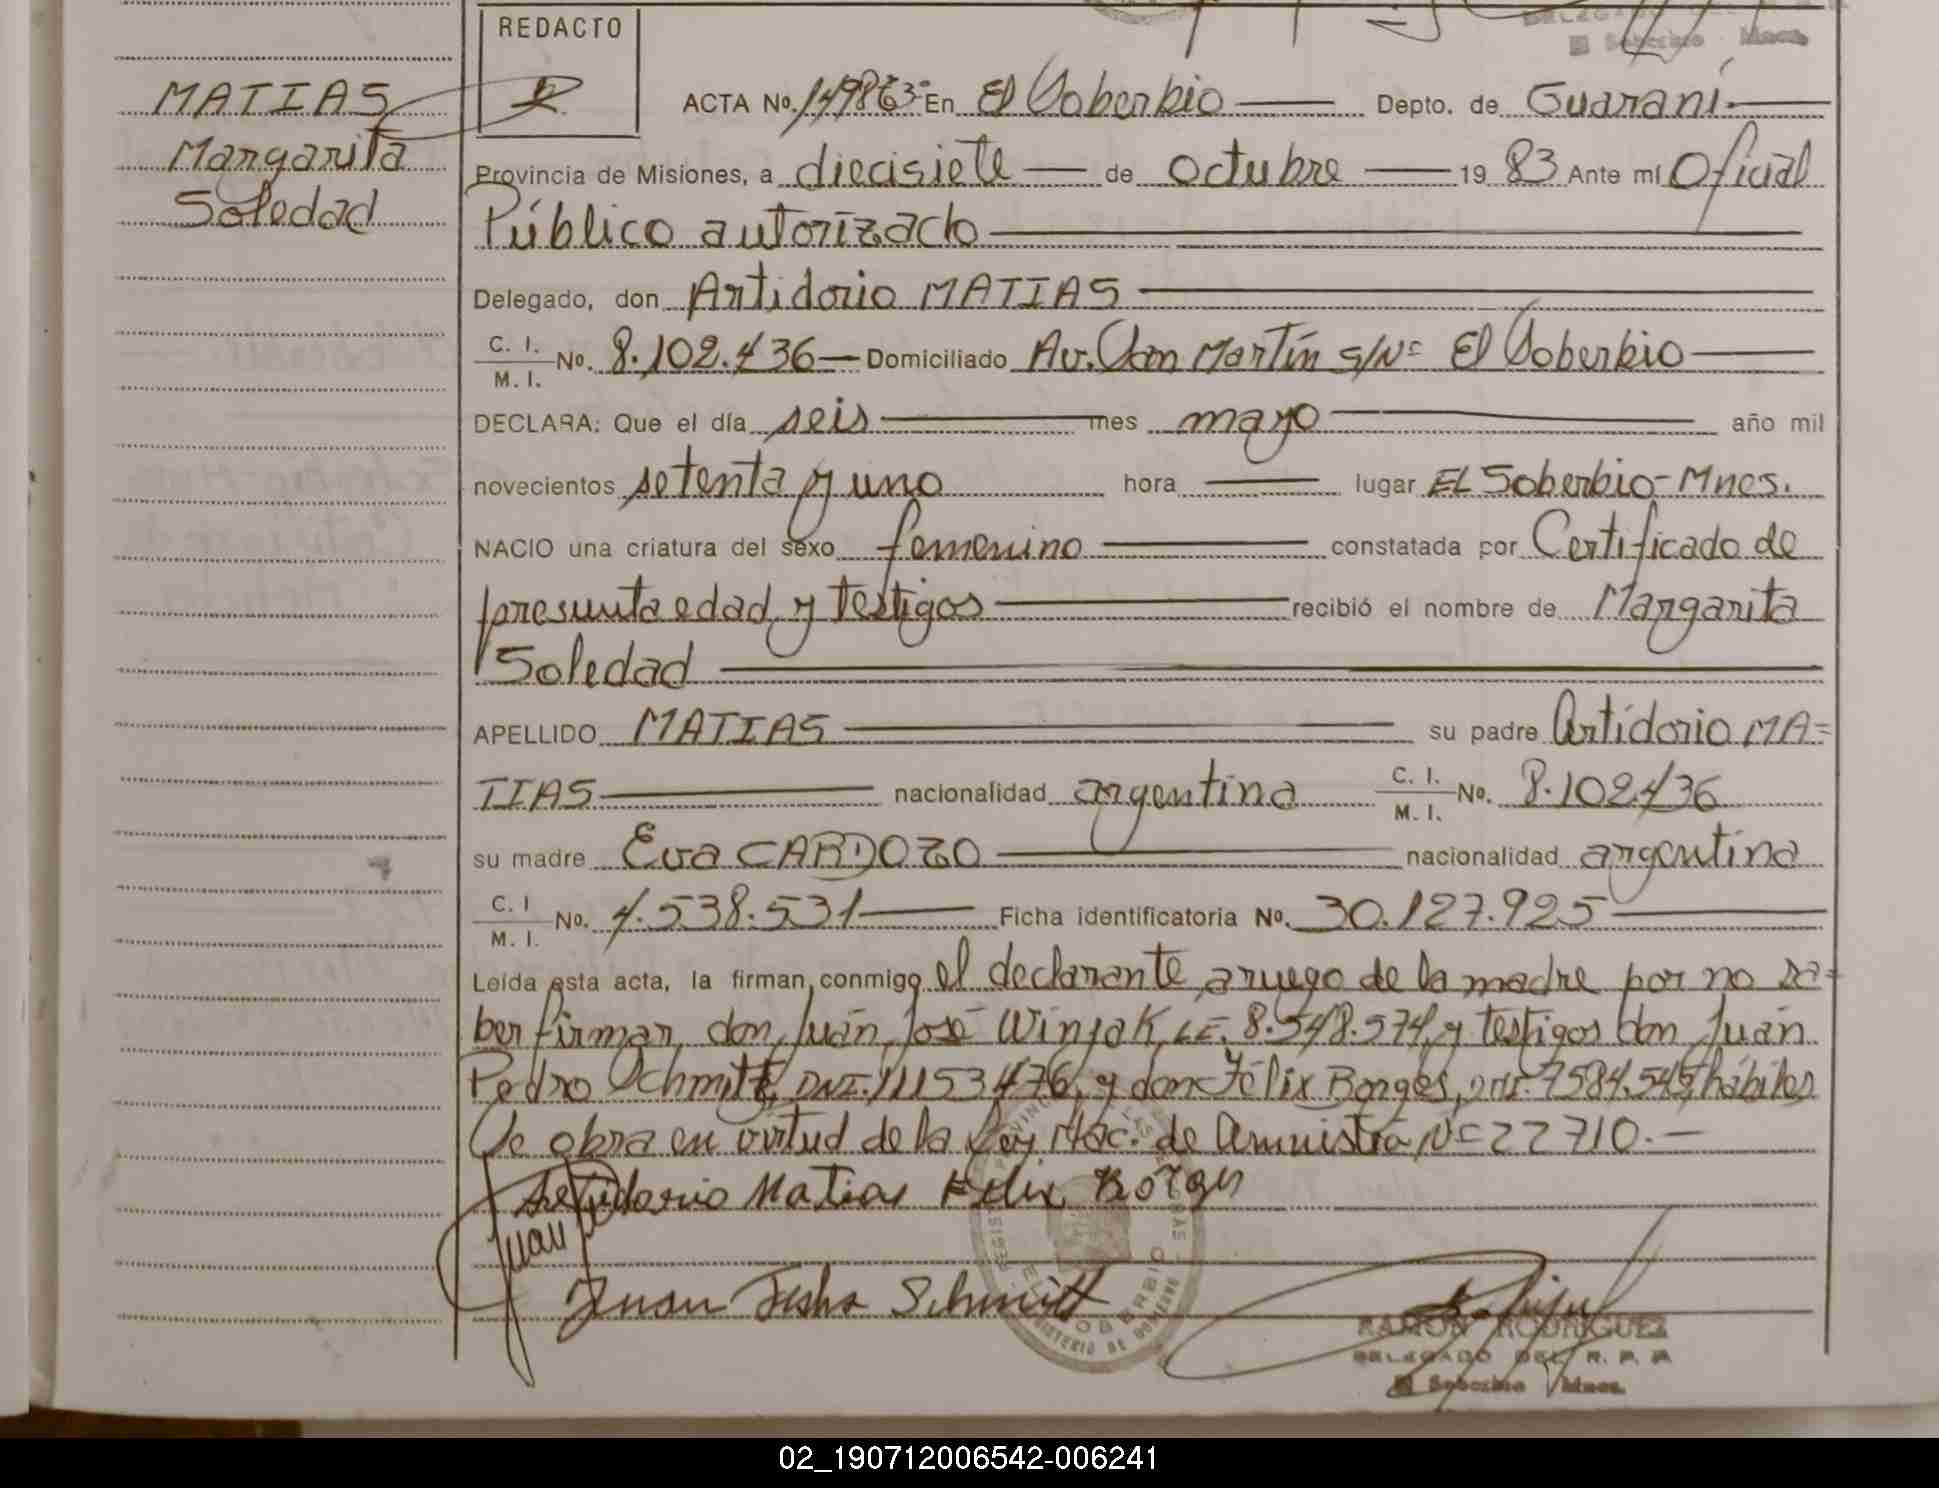 REDACTO
MATIAS
Margarita
Soledad
ACTA No. 149863 En El Soberbio Depto. de Guaraní
Provincia de Misiones, a diecisiete de octubre 19 83 Ante mí Oficial
Público autorizado
Delegado, don Antidorio MATIAS
C. I.
M. I. No. 8.102.436 Domiciliado Av. San Martín s/Nº El Soberbio
DECLARA: Que el día seis mes mayo año mil
novecientos setenta y uno hora lugar EL Soberbio-Mnes.
NACIO una criatura del sexo femenino constatada por Certificado de
presunta edad y testigos recibió el nombre de Margarita
Soledad
APELLIDO MATIAS su padre Antidorio MA=
TIAS nacionalidad argentina C. I. M. I. No. 8.102.436
su madre Eva CARDOZO nacionalidad argentina
C. I M. I. No. 4.538.531 Ficha identificatoria No. 30.127.925
Leída esta acta, la firman conmigo el declarante, a ruego de la madre por no sa=
ber firmar, don Juán José Winjak, LE. 8.548.574, y testigos don Juán
Pedro Schmitt, DNI. 11153476, y don Félix Borges, DNI. 7584.545, hábiles
Se obra en virtud de la Ley Nac. de Amnistía Nº 22710.-
Antidorio Matias Felix Borges
Juan
Juan Schmitt
RAMON RODRIGUEZ
DELEGADO DEL R. P. P.
El Soberbio Mnes.
02_190712006542-006241